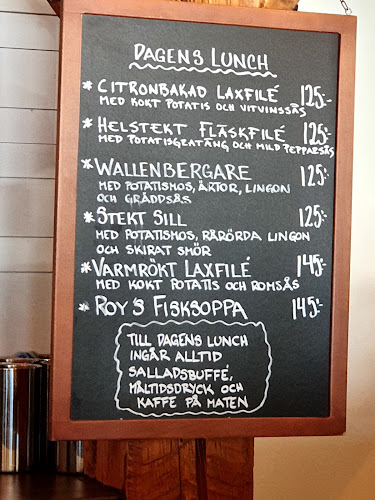 DAGENS LUNCH
* CITRONBAKAD LAXFILÉ 125:-
MED KOKT POTATIS OCH VITVINSSÅS
* HELSTEKT FLÄSKFILÉ 125:-
MED POTATISGRATÄNG OCH MILD PEPPARSÅS
* WALLENBERGARE 125:-
MED POTATISMOS, ÄRTOR, LINGON
OCH GRÄDDSÅS
* STEKT SILL 125:-
MED POTATISMOS, RÅRÖRDA LINGON
OCH SKIRAT SMÖR
* VARMRÖKT LAXFILÉ 145:-
MED KOKT POTATIS OCH ROMSÅS
* ROY'S FISKSOPPA 145:-
TILL DAGENS LUNCH
INGÅR ALLTID
SALLADSBUFFÉ,
MÅLTIDSDRYCK OCH
KAFFE PÅ MATEN